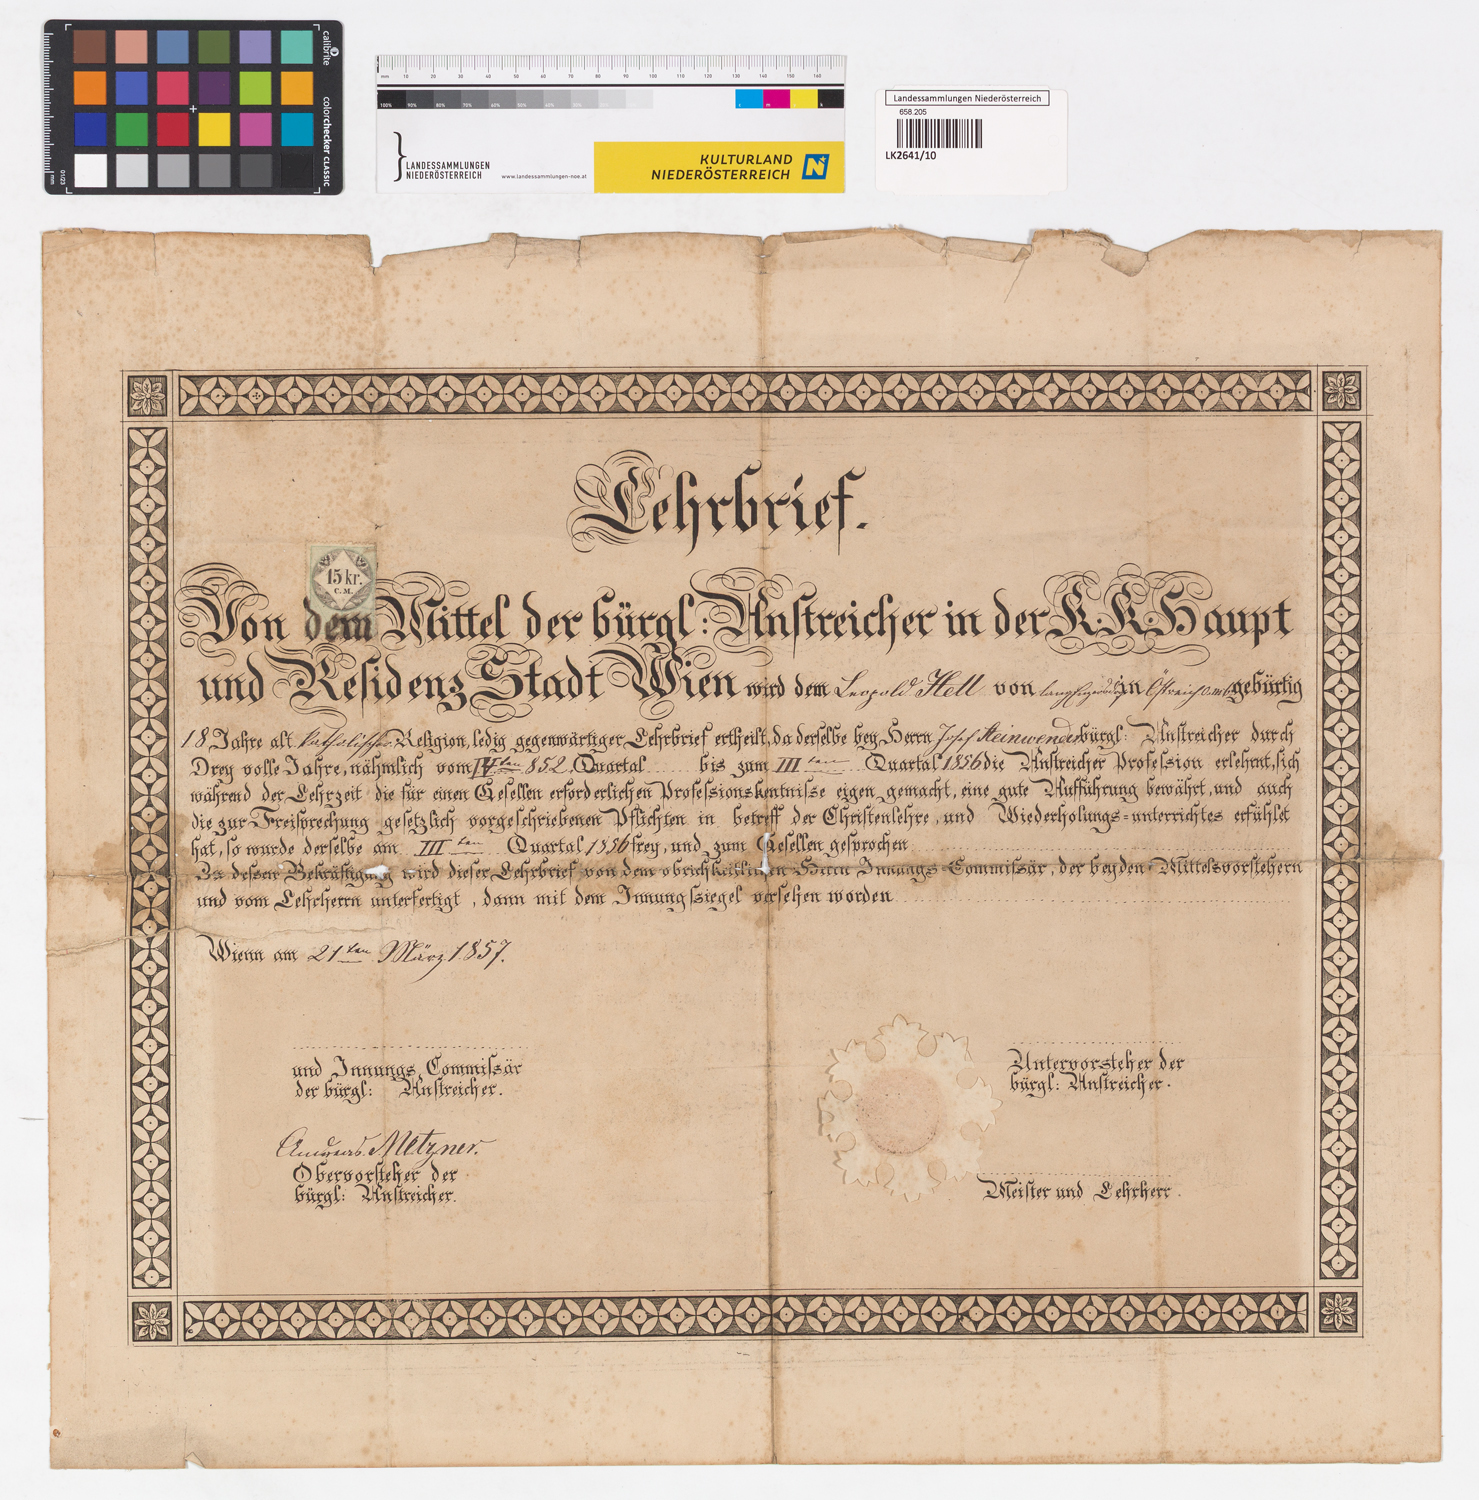 calibrite
colorchecker CLASSIC
mm
01/23
mm 10 20 30 40 50 60 70 80 90 100 110 120 130 140 150 160
100% 90% 80% 70% 60% 50% 40% 30% 20% 10%
c m y k
LANDESSAMMLUNGEN
NIEDERÖSTERREICH
www.landessammlungen-noe.at
KULTURLAND
NIEDERÖSTERREICH
N
Landessammlungen Niederösterreich
658.205
LK2641/10
Lehrbrief.
15 kr.
C.M.
Von dem Mittel der bürgl: Anstreicher in der K. K. Haupt
und Residenz Stadt Wien wird dem Leopold Hell von in Östreich gebürtig
18 Jahre alt Katholischer Religion, ledig gegenwärtiger Lehrbrief ertheilt, da derselbe bey Herrn Josef Steinwender bürgl: Anstreicher durch
Drey volle Jahre, nähmlich vom IV ten 852 Quartal bis zum III ten Quartal 1856 die Anstreicher Profession erlehrnt, sich
während der Lehrzeit die für einen Gesellen erforderlichen Professionskentnisse eigen gemacht, eine gute Aufführung bewährt, und auch
die zur Freisprechung gesetzlich vorgeschriebenen Pflichten in betreff der Christenlehre, und Wiederholungs=unterrichtes erfühlet
hat, so wurde derselbe am III ten Quartal 1856 frey, und zum Gesellen gesprochen
Zu dessen Bekräftigung wird dieser Lehrbrief von dem obrichkeitlichen Herrn Innungs Commissär, der beyden Mittelsvorstehern
und vom Lehrherrn unterfertigt, dann mit dem Innungssiegel versehen worden
Wienn am 21ten März 1857.
und Innungs Commissär
der bürgl: Anstreicher.
Untervorsteher der
bürgl: Anstreicher.
Andreas Metzner.
Obervorsteher der
bürgl: Anstreicher.
Meister und Lehrherr.